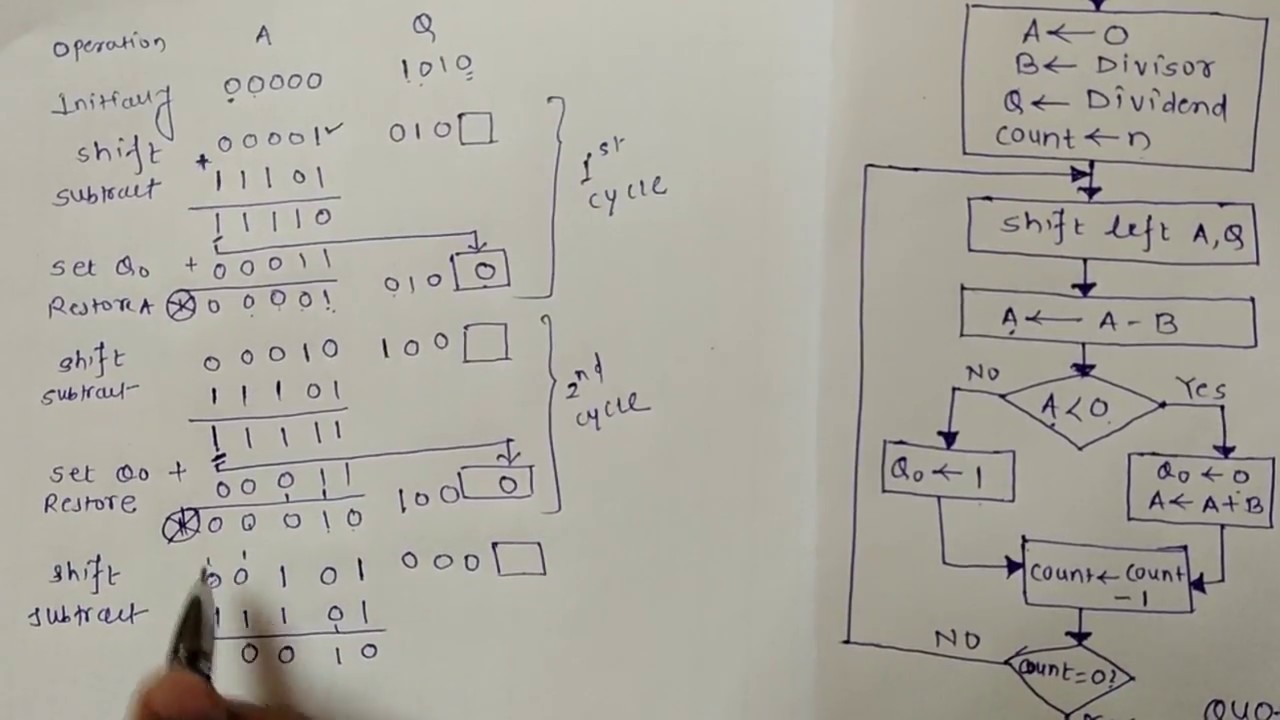 Operation A Q
Initially 00000 1010
shift 00001 010
subtract + 11101
11110
set Q0 + 00011 010 0
Restore A 00001
shift 00010 100
subtract 11101
11111
set Q0 + 00011 100 0
Restore 00010
shift 00101 000
subtract 11101
0010
1st
cycle
2nd
cycle
A ← 0
B ← Divisor
Q ← Dividend
count ← n
shift left A,Q
A ← A - B
NO A < 0 Yes
Q0 ← 1
Q0 ← 0
A ← A + B
count ← count
-1
NO
count = 0?